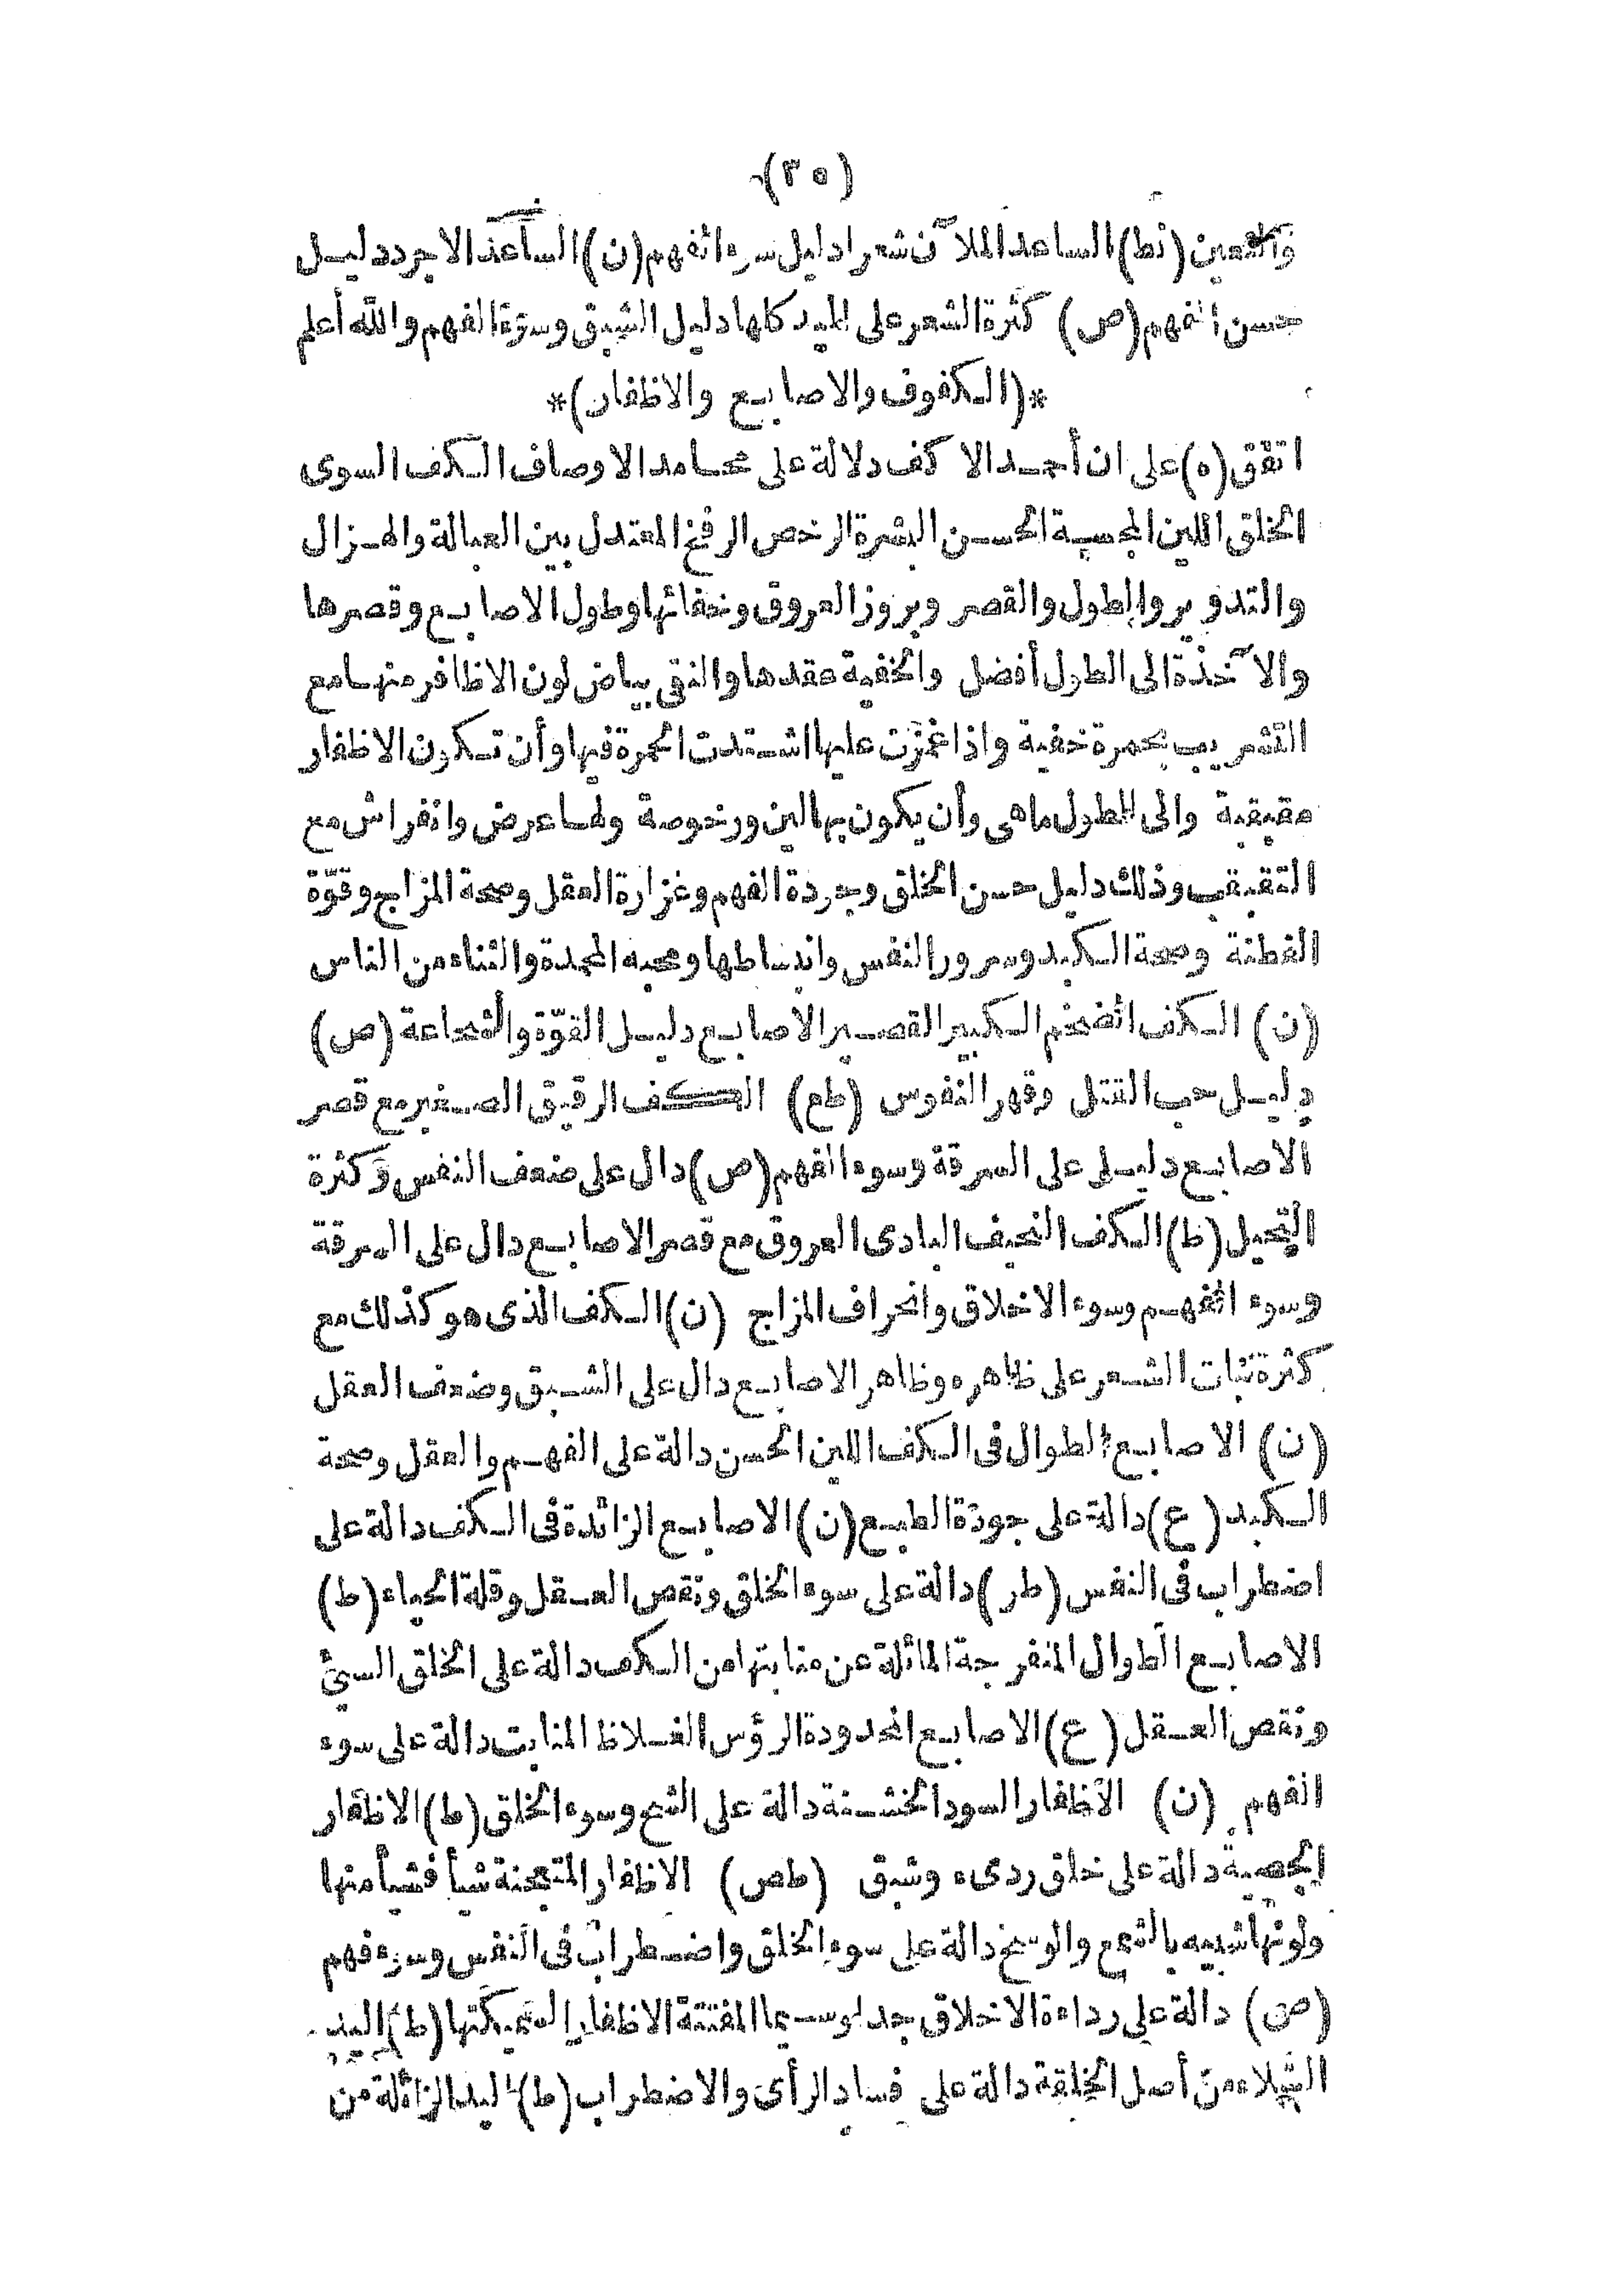 (٣٥)
(نط) الساعد الملآن شعرا دليل سوء الفهم (ن) الساعد الاجرد دليل
حسن الفهم (ص) كثرة الشعر على اليد كلها دليل الشبق وسوء الفهم والله أعلم
*(الكفوف والاصابع والاظفار)*
اتفق (ه) على ان أجد الاكف دلالة على محامد الاوصاف الكف السوى
الخلق اللين المجسة الحسن البشرة الرخص الرفخ المعتدل بين العبالة والهزال
والتدوير والطول والقصر وبروز العروق وخفائها وطول الاصابع وقصرها
والآخذة الى الطول أفضل والخفية عقدها والنقى بياض لون الاظافر منها مع
التشريب بحمرة خفية واذا غمزت عليها اشتدت الحمرة فيها وأن تكون الاظفار
مقبقبة والى الطول ماهى وأن يكون بها لين ورخوصة ولها عرض وانفراش مع
التقبقب وذلك دليل حسن الخلق وجودة الفهم وغزارة العقل وصحة المزاج وقوّة
الفطنة وصحة الكبد وسرور النفس وانبساطها ومحبه المجدة والثناء من الناس
(ن) الكف الضخم الكبير القصير الاصابع دليل القوّة والشجاعة (ص)
دليل حب القتل وقهر النفوس (طع) الكف الرقيق الصغير مع قصر
الاصابع دليل على السرقة وسوء الفهم (ص) دال على ضعف النفس وكثرة
التحيل (ط) الكف النحيف البادى العروق مع قصر الاصابع دال على السرقة
وسوء الفهم وسوء الاخلاق وانحراف المزاج (ن) الكف الذى هو كذلك مع
كثرة نبات الشعر على ظاهره وظاهر الاصابع دال على الشبق وضعف العقل
(ن) الاصابع الطوال فى الكف اللين الحسن دالة على الفهم والعقل وصحة
الكبد (ع) دالة على جودة الطبع (ن) الاصابع الزائدة فى الكف دالة على
اضطراب فى النفس (طر) دالة على سوء الخلق ونقص العقل وقلة الحياء (ط)
الاصابع الطوال المنفرجة المائلة عن منابتها من الكف دالة على الخلق السيئ
ونقص العقل (ع) الاصابع المحدودة الرؤس الغلاظ المنابت دالة على سوء
الفهم (ن) الاظفار السود الخشنة دالة على الشح وسوء الخلق (ط) الاظفار
الجصية دالة على خلق ردىء وشبق (طص) الاظفار المتعجنة شيأ فشيأ منها
ولونها شبيه بالشمع والوسخ دالة على سوء الخلق واضطراب فى النفس وسوء فهم
(ص) دالة على رداءة الاخلاق جدا وسيما المفتتة الاظفار السميكتها (ط) اليد
الشلاء من أصل الخلقة دالة على فساد الرأى والاضطراب (ط) اليد الزائلة من